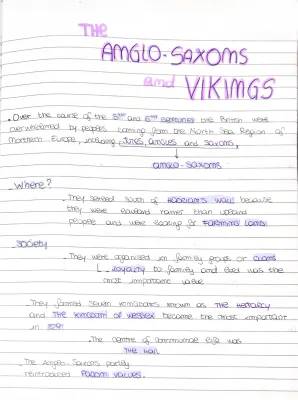 THE
ANGLO-SAXONS
and
VIKINGS
. Over the course of the 5th and 6th centuries the British were
overwhelmed by peoples coming from the North Sea Region of
Northern Europe, including Jutes, Angles and Saxons,
anglo-saxons
_Where?
_They settled south of Hadrian's Wall because
they were lowland rather than upland
people and were looking for farming land.
_Society
_They were organised in family groups or clans
loyalty to family and lord was the
most important value
_They formed seven kingdoms known as the Heptarchy
and the Kingdom of Wessex became the most important
in 829.
_The centre of communal life was
the hall
_The Anglo-Saxons partly
reintroduced pagan values.